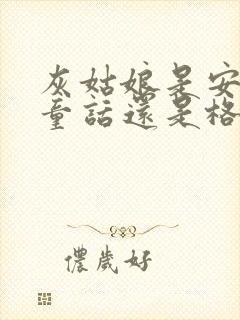 灰姑娘是安
童話還是格
儂歲好